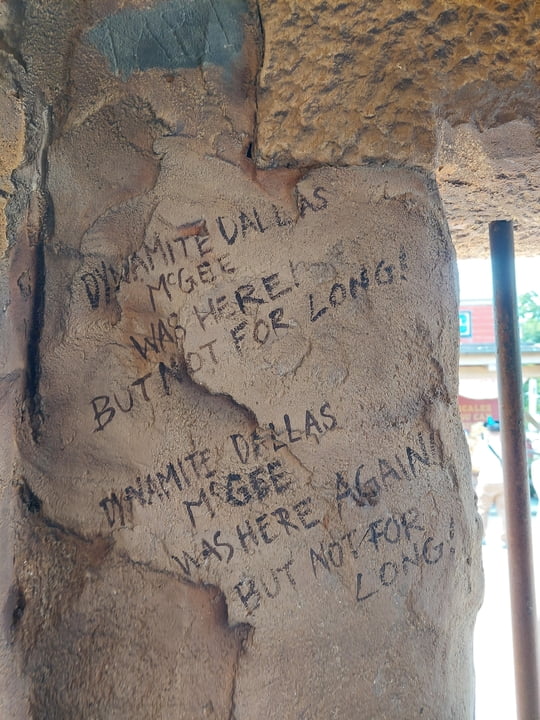 DYNAMITE DALLAS
MCGEE
WAS HERE!
BUT NOT FOR LONG!
DYNAMITE DALLAS
MCGEE
WAS HERE AGAIN!
BUT NOT FOR
LONG!